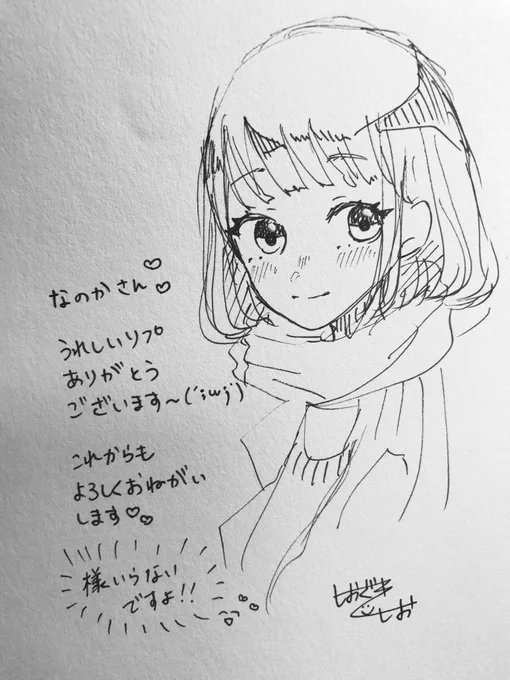 なのかさん♡♡
うれしいリプ
ありがとう
ございます〜(´;ω;`)
これからも
よろしくおねがい
します♡♡
様いらない
ですよ!!
しお